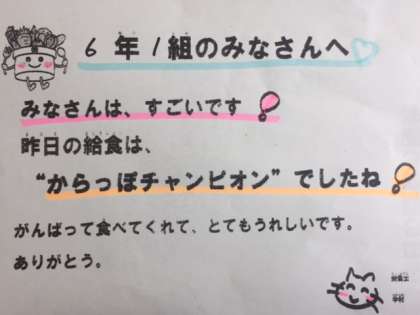 6年1組のみなさんへ
みなさんは、すごいです
昨日の給食は、
“からっぽチャンピオン”でしたね
がんばって食べてくれて、とてもうれしいです。
ありがとう。